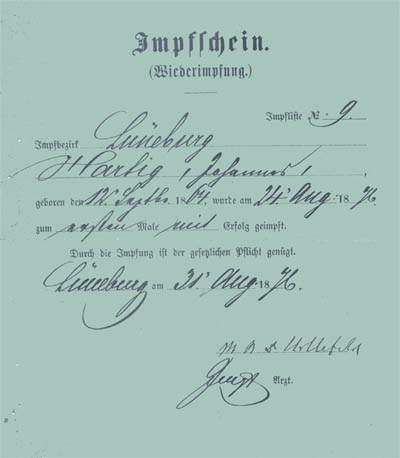 Impfschein.
(Wiederimpfung.)
Impfliste № 9.
Impfbezirk Lüneburg
Hartig, Johannes,
geboren den 12. Septbr. 1864, wurde am 24t Aug. 1876.
zum ersten Male mit Erfolg geimpft.
Durch die Impfung ist der gesetzlichen Pflicht genügt.
Lüneburg am 31t Aug. 1876.
Arzt.